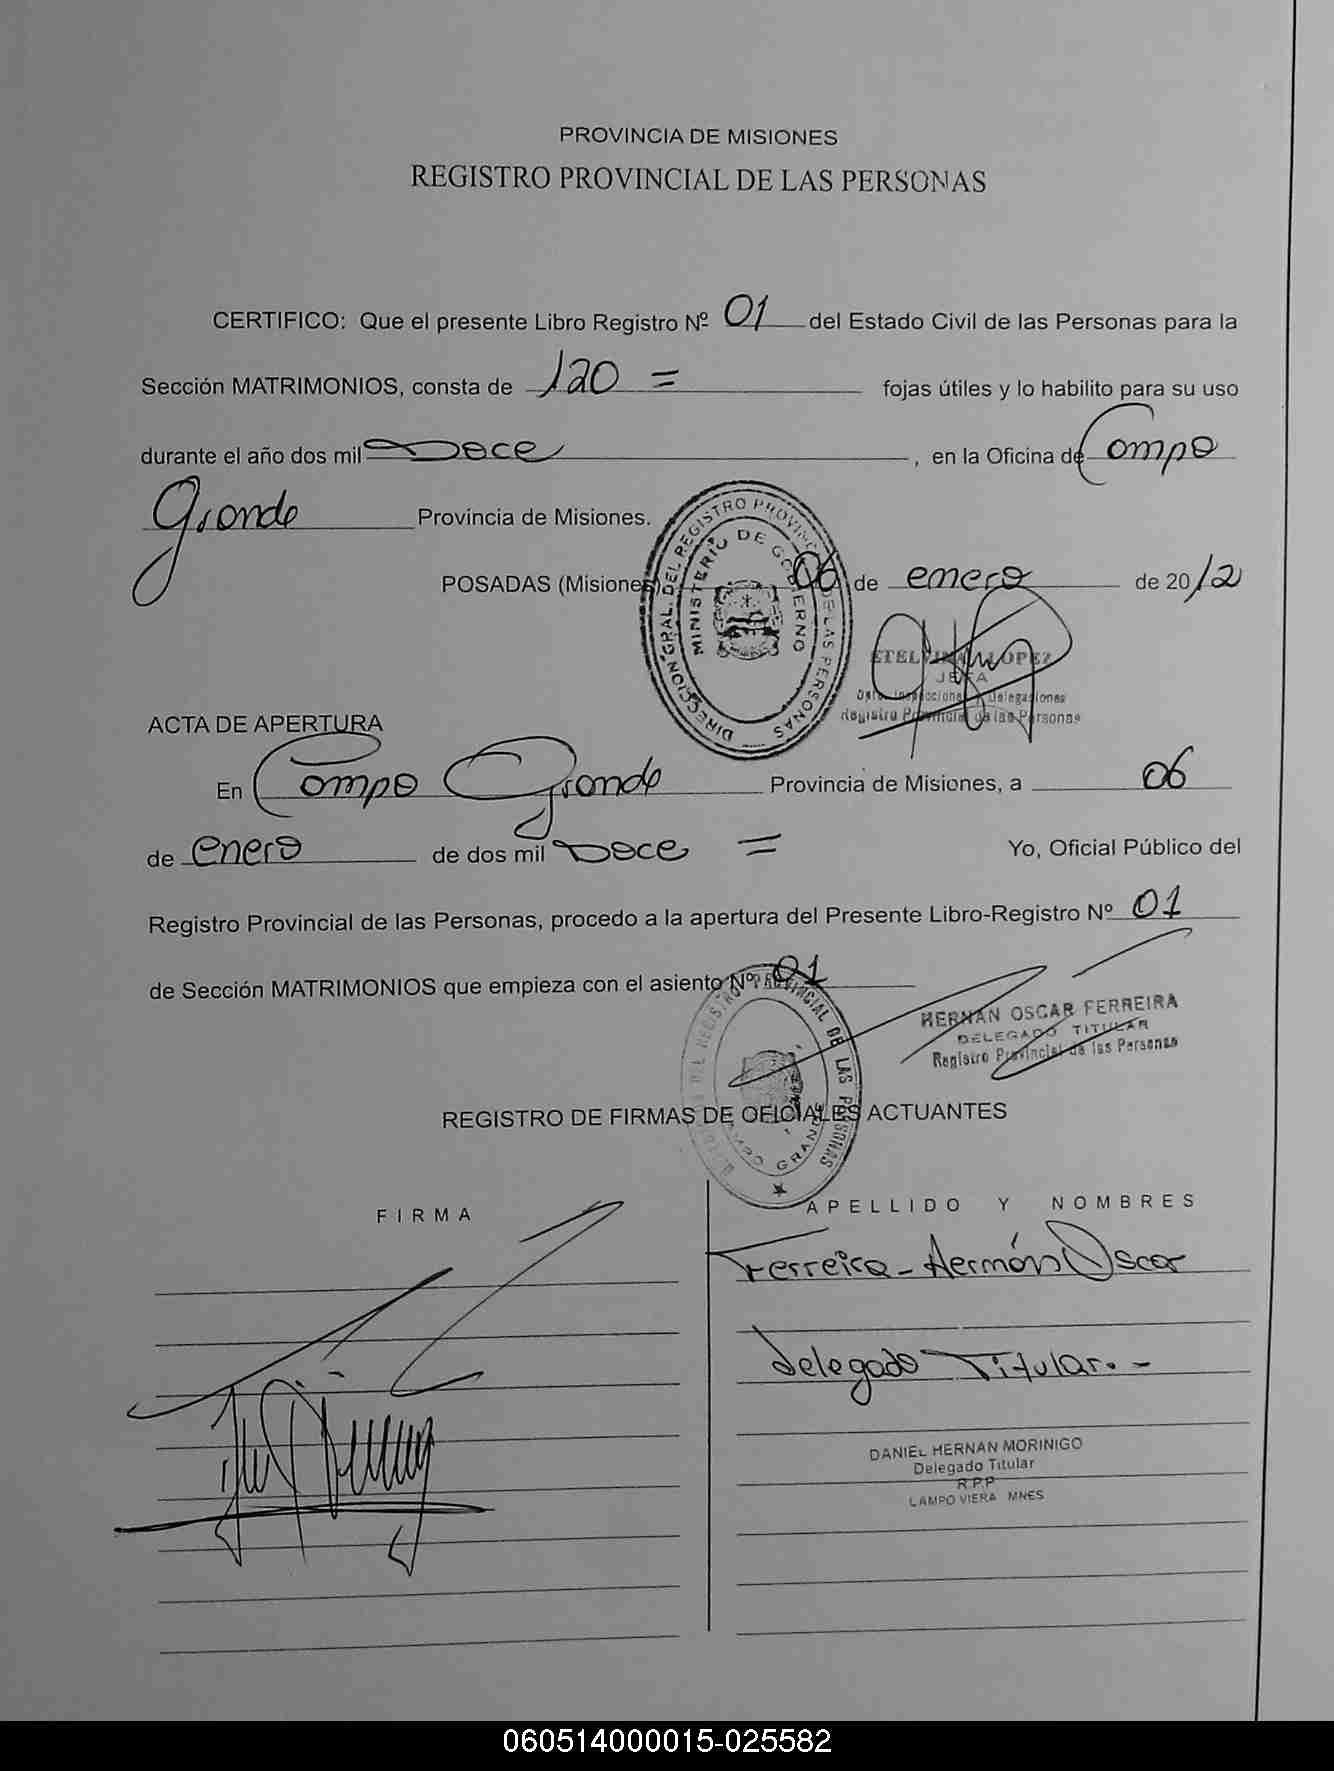 PROVINCIA DE MISIONES
REGISTRO PROVINCIAL DE LAS PERSONAS
CERTIFICO: Que el presente Libro Registro Nº 01 del Estado Civil de las Personas para la
Sección MATRIMONIOS, consta de 120 = fojas útiles y lo habilito para su uso
durante el año dos mil Doce , en la Oficina de Campo
Grande Provincia de Misiones.
DIRECCION GRAL. DEL REGISTRO PROVINCIAL DE LAS PERSONAS
MINISTERIO DE GOBIERNO
POSADAS (Misiones), 06 de enero de 2012
ETELVINA LOPEZ
JEFA
Dpto. Inspecciones y Delegaciones
Registro Provincial de las Personas
ACTA DE APERTURA
En Campo Grande Provincia de Misiones, a 06
de enero de dos mil Doce = Yo, Oficial Público del
Registro Provincial de las Personas, procedo a la apertura del Presente Libro-Registro Nº 01
de Sección MATRIMONIOS que empieza con el asiento Nº 01
DEL REGISTRO PROVINCIAL DE LAS PERSONAS
CAMPO GRANDE
HERNAN OSCAR FERREIRA
DELEGADO TITULAR
Registro Provincial de las Personas
REGISTRO DE FIRMAS DE OFICIALES ACTUANTES
FIRMA
APELLIDO Y NOMBRES
Ferreira - Hernán Oscar
delegado Titular. -
DANIEL HERNAN MORINIGO
Delegado Titular
R.P.P
CAMPO VIERA MNES
060514000015-025582